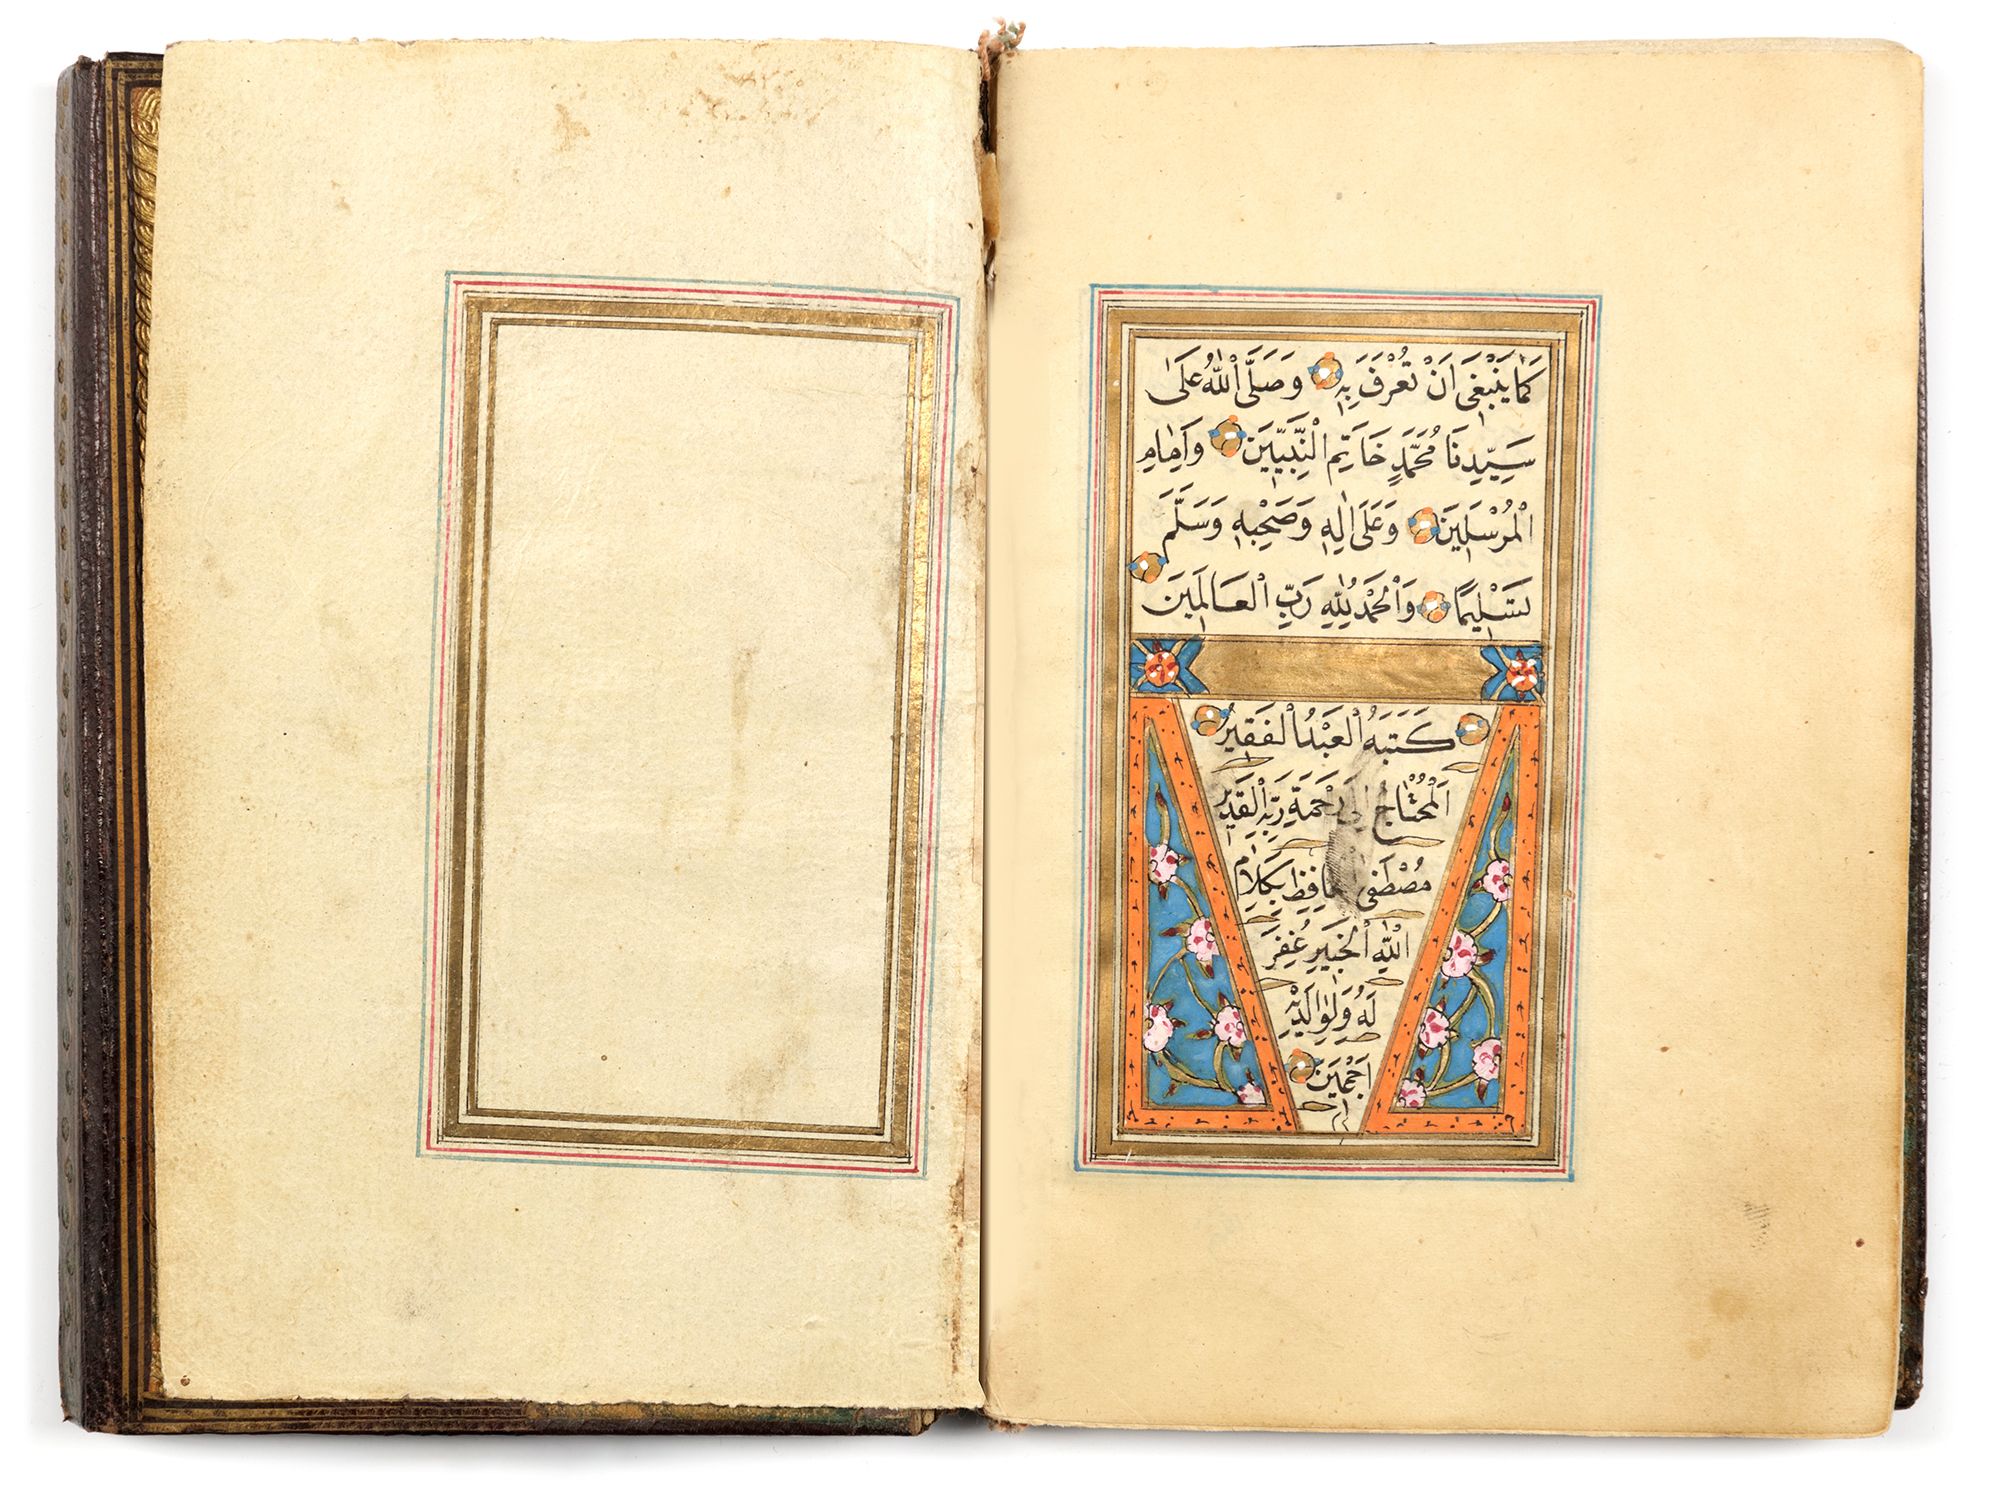 كَمَا يَنْبَغِى اَنْ تُعْرَفَ بِهِ وَصَلَّى اللهُ عَلَى
سَيِّدِنَا مُحَمَّدٍ خَاتِمِ النَّبِيّينَ وَاِمَامِ
الْمُرْسَلِينَ وَعَلَى اٰلِهِ وَصَحْبِهِ وَسَلَّمَ
تَسْلِيمًا وَالْحَمْدُ لِلّٰهِ رَبِّ الْعَالَمِينَ
كَتَبَهُ الْعَبْدُ الْفَقِيرُ
الْمُحْتَاجُ اِلَى رَحْمَةِ رَبِّهِ الْقَدِيرِ
مُصْطَفَى حَافِظِ بِكَلَامِ
اللهِ الْخَبِيرِ غُفِرَ
لَهُ وَلِوَالِدَيْهِ
اَجْمَعِينَ